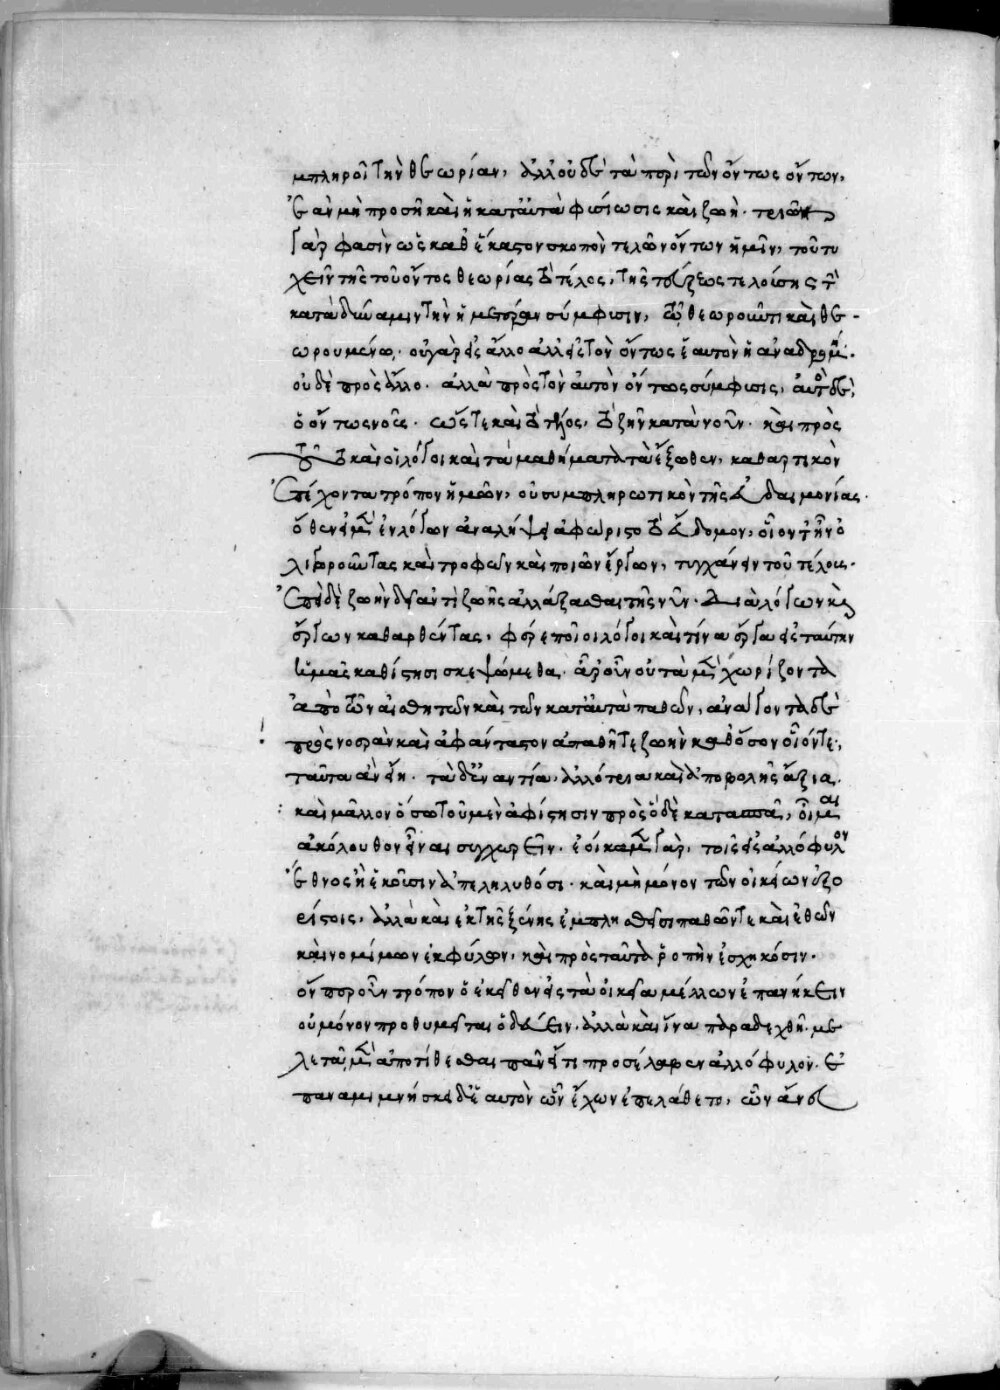 μπληροῖ τὴν θεωρίαν, ἀλλ οὐδὲ τὰ περὶ τῶν ὄντως ὄντων,
ἐὰν μὴ προσῆ καὶ ἡ κατ αὐτὰ φυσίωσις καὶ ζωή.
γάρ φασὶν ὡς καθ ἕκαστον σκοπὸν τελῶν ὄντων ἡμῖν, τοῦ τυ
χεῖν τῆς τοῦ ὄντος θεωρίας τὸ τέλος, τῆς τεύξεως τελούσης τὴν
κατὰ δύναμιν τὴν ἡμετέραν σύμφυσιν, τῶ θεωροῦντι καὶ θε-
ωρουμένω. οὐ γὰρ εἰς ἄλλο ἀλλ εἰς τὸν ὄντως ἑαυτὸν ἡ ἀναδρομή.
οὐδὲ πρὸς ἄλλο. ἀλλὰ πρὸς τὸν αὐτὸν ὄντως σύμφυσις, αὐτὸς δὲ,
ὁ ὄντως νοῦς. ὥστε καὶ τὸ τέλος, τὸ ζῆν κατὰ νοῦν. καὶ πρὸς
τοῦτο καὶ οἱ λόγοι καὶ τὰ μαθήματα τὰ ἔξωθεν, καθαρτικὸν
ἐπέχοντα τρόπον ἡμῶν, οὐ συμπληρωτικὸν τῆς εὐδαιμονίας.
ὅθεν εἰ μὲν ἐν λόγων ἀναλήψει ἀφώριστο τὸ εὔδαιμον, οἷον τ ἦν ὀ
λιγωροῦντας καὶ τροφῶν καὶ ποιῶν ἔργων, τυγχάνειν τοῦ τέλους.
ἐπεὶ δὲ ζωὴν δεῖ ἀντὶ ζωῆς ἀλλάξασθαι τῆς νῦν. διὰ λόγων καὶ
ἔργων καθαρθέντας, φέρε ποῖοι λόγοι καὶ τίνα ἔργα εἰς ταύτην
ἡμᾶς καθίστησι σκεψώμεθα. ἆρ οὖν οὐ τὰ μὲν χωρίζοντα
ἀπὸ τῶν αἰσθητῶν καὶ τῶν κατ αὐτὰ παθῶν, ἀνάγοντα δὲ
πρὸς νοερὰν καὶ ἀφάνταστον ἀπαθῆ τε ζωὴν καθ ὅσον οἷόν τε,
ταῦτα ἂν εἴη. τὰ δ ἐναντία, ἀλλότρια καὶ ἀποβολῆς ἄξια.
καὶ μᾶλλον ὅσω τοῦ μὲν ἀφίστησιν πρὸς ὃ δὲ κατασπᾶ, οἶμαι
ἀκόλουθον εἶναι συγχωρεῖν. ἐοίκαμεν γὰρ, τοῖς εἰς ἀλλόφυλον
ἔθνος ἢ ἑκοῦσιν ἀπεληλυθόσι. καὶ μὴ μόνον τῶν οἰκείων ἐξο
ρίστοις, ἀλλὰ καὶ ἐκ τῆς ξένης ἐμπλησθεῖσι παθῶν τε καὶ ἐθῶν
καὶ νομίμων ἐκφύλων, καὶ πρὸς ταῦτα ῥοπὴν ἐσχηκόσιν.
ὅνπερ οὖν τρόπον ὁ ἐκεῖθεν εἰς τὰ οἰκεῖα μέλλων ἐπανήκειν
οὐ μόνον προθυμεῖται ὁδεύειν. ἀλλὰ καὶ ἵνα παραδεχθῆ. με
λετᾶ μὲν ἀποτίθεσθαι πᾶν εἴ τι προσέλαβεν ἀλλόφυλον. ἐ
παναμιμνήσκει δὲ ἑαυτὸν ὧν ἔχων ἐπελάθετο, ὧν ἄνευ